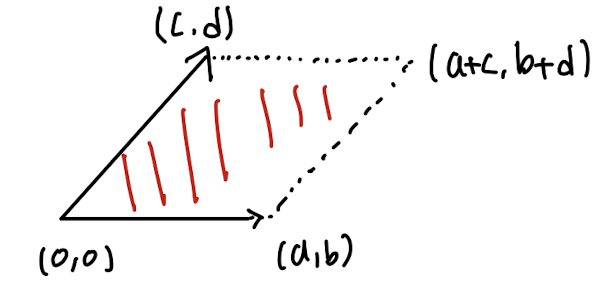 (c,d)
(a+c, b+d)
(0,0)
(a,b)